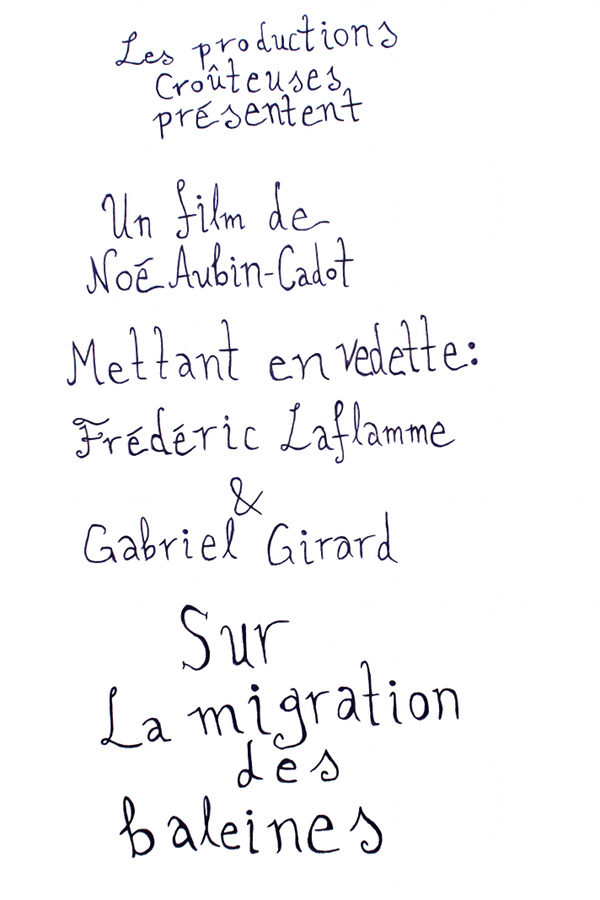 Les productions
Croûteuses
présentent
Un film de
Noé Aubin-Cadot
Mettant en vedette:
Frédéric Laflamme
&
Gabriel Girard
Sur
La migration
des
baleines